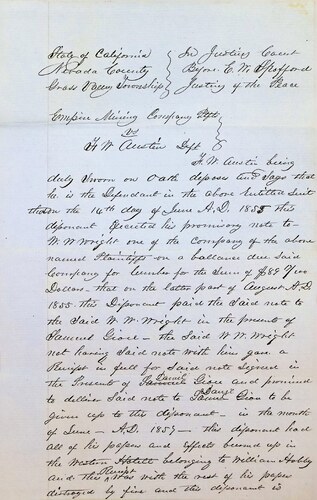 State of California } In Justices Court
Nevada County } Before C. W. Spofford
Grass Valley Township } Justice of the Peace
Empire Mining Company Plff
vs
F. W. Austin Deft
F. W. Austin being
duly sworn on oath deposes and says that
he is the Defendant in the above Entitled suit
that on the 14th day of June A.D. 1855 this
deponant Executed his promissory note to
W. W. Wright one of the Company of the above
named Plaintiffs on a ballance due said
Company for Lumber for the Sum of $89
Dollars - that on the latter part of August A.D.
1855 this Deponant paid the said note to
the Said W. W. Wright in the presents of
Samuel Giore - the Said W. W. Wright
not having Said note with him gave a
Receipt in full for Said note Signed in
the Presents of Daniel Giore and promised
to deliver Said note to Danil Giore to be
given up to the deponant - in the month
of June - A.D. 1857 - this deponant had
all of his papers and Effects burned up in
the Western Hotell belonging to William Hobby
and this Receipt was with the rest of his paper
destroyed by fire and this deponant is